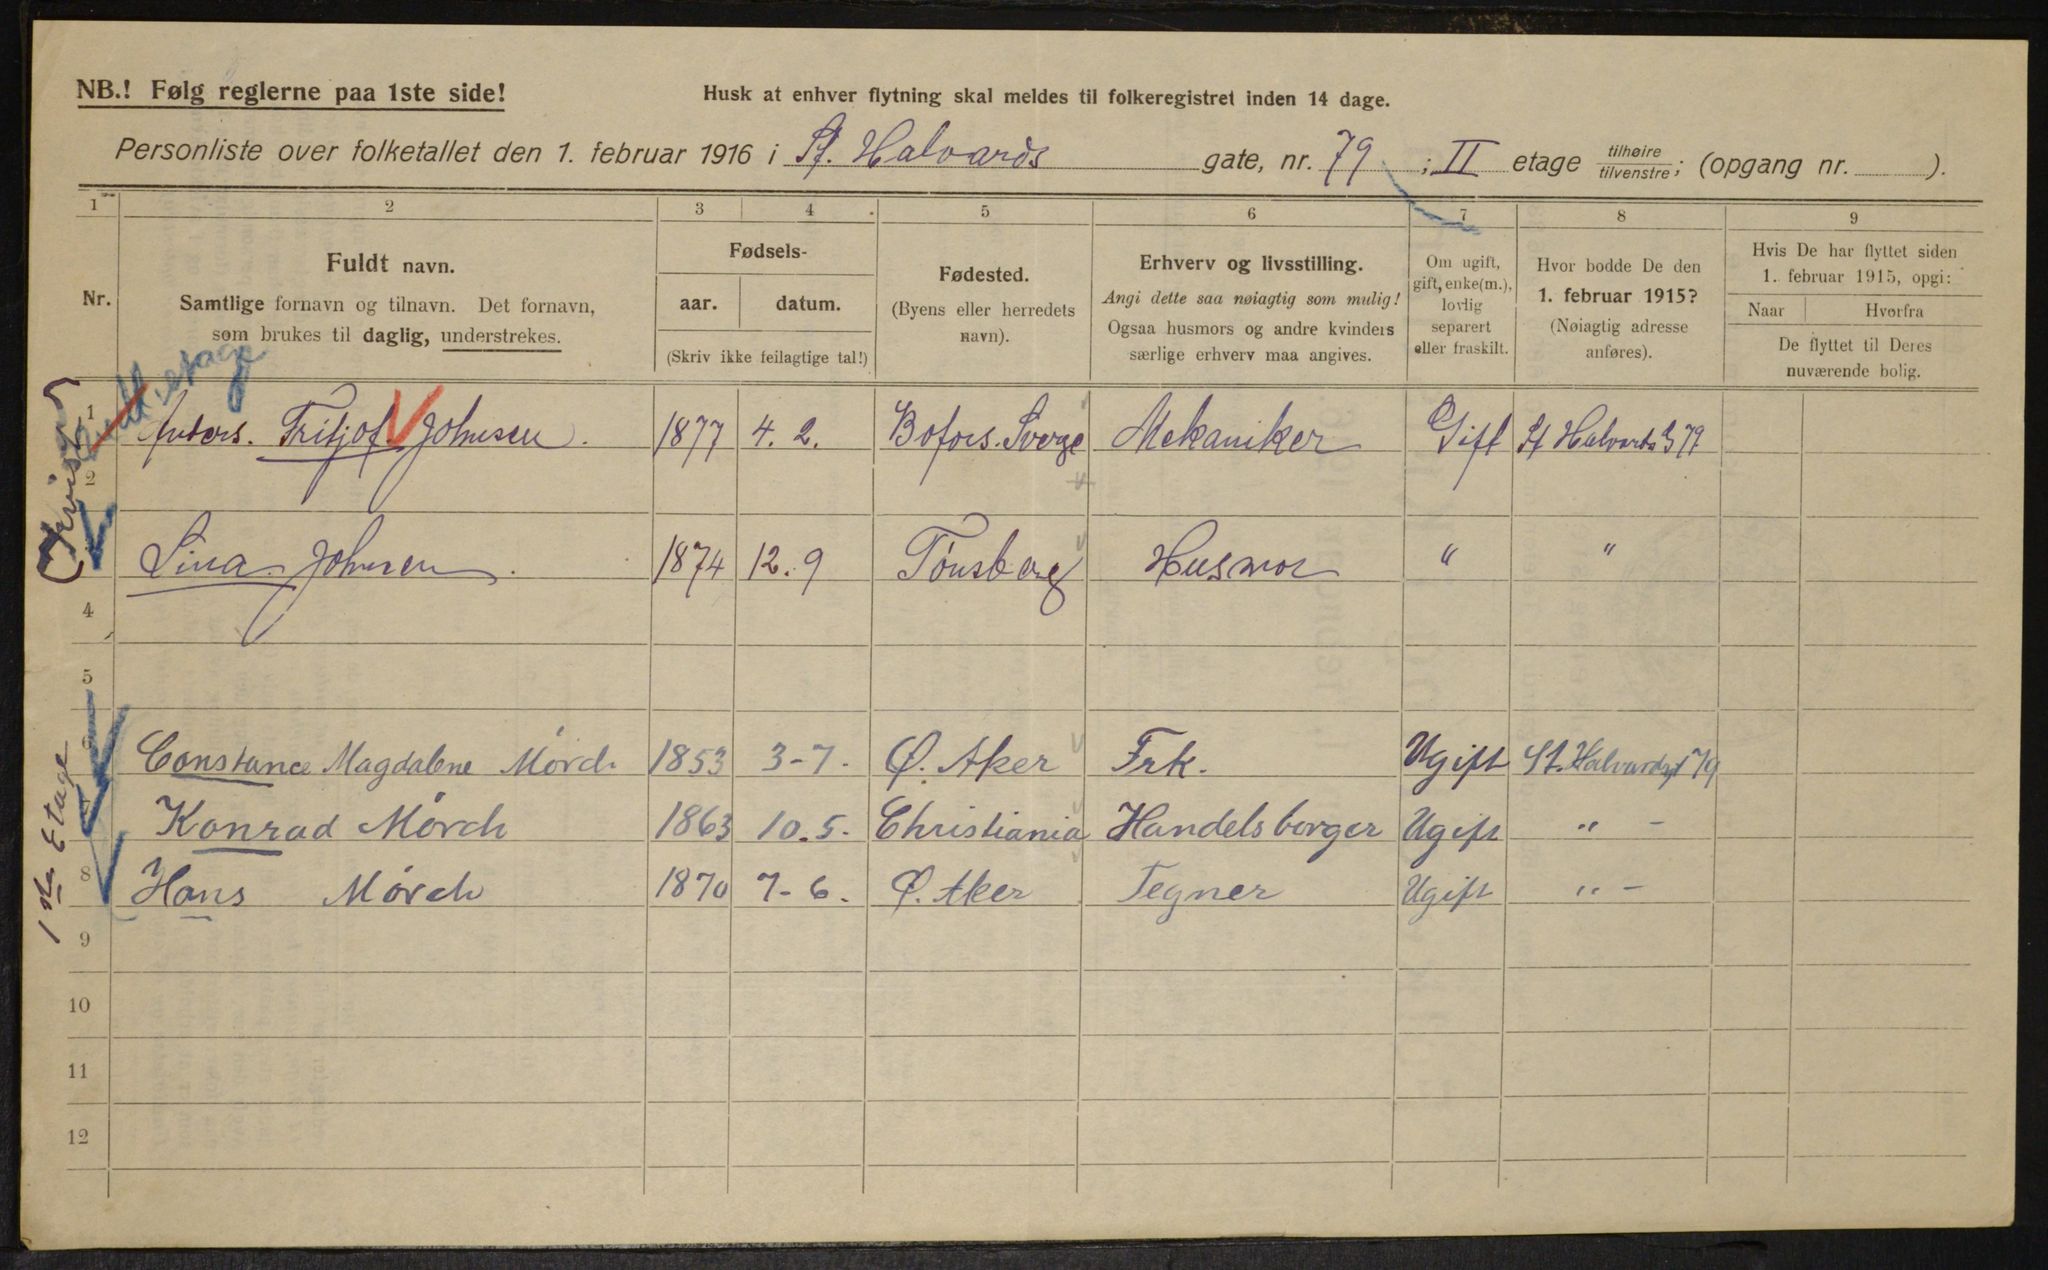 NB.! Følg reglerne paa 1ste side!
Husk at enhver flytning skal meldes til folkeregistret inden 14 dage.
Personliste over folketallet den 1. februar 1916 i St. Halvards gate, nr. 79 ; II etage tilhøire / tilvenstre; (opgang nr. ).
1 2 3 4 5 6 7 8 9
Nr.
Fuldt navn.
Samtlige fornavn og tilnavn. Det fornavn,
som brukes til daglig, understrekes.
Fødsels-
aar. datum.
(Skriv ikke feilagtige tal!)
Fødested.
(Byens eller herredets
navn).
Erhverv og livsstilling.
Angi dette saa nøiagtig som mulig!
Ogsaa husmors og andre kvinders
særlige erhverv maa angives.
Om ugift,
gift, enke(m.),
lovlig
separert
eller fraskilt.
Hvor bodde De den
1. februar 1915?
(Nøiagtig adresse
anføres).
Hvis De har flyttet siden
1. februar 1915, opgi:
Naar Hvorfra
De flyttet til Deres
nuværende bolig.
etage
1 Anders. Fritjof Johnsen. 1877 4. 2. Bofors. Sverge Mekaniker Gift St Halvards G 79
2
Lina Johnsen. 1874 12. 9 Tønsberg Husmor " "
4
5
6 Constance Magdalene Mørch 1853 3-7. Ø. Aker Frk. Ugift St. Halvardsgt 79
7 Konrad Mørch 1863 10. 5. Christiania Handelsborger Ugift " -
8 Hans Mørch 1870 7-6. Ø. Aker Tegner Ugift " -
1ste Etage
9
10
11
12